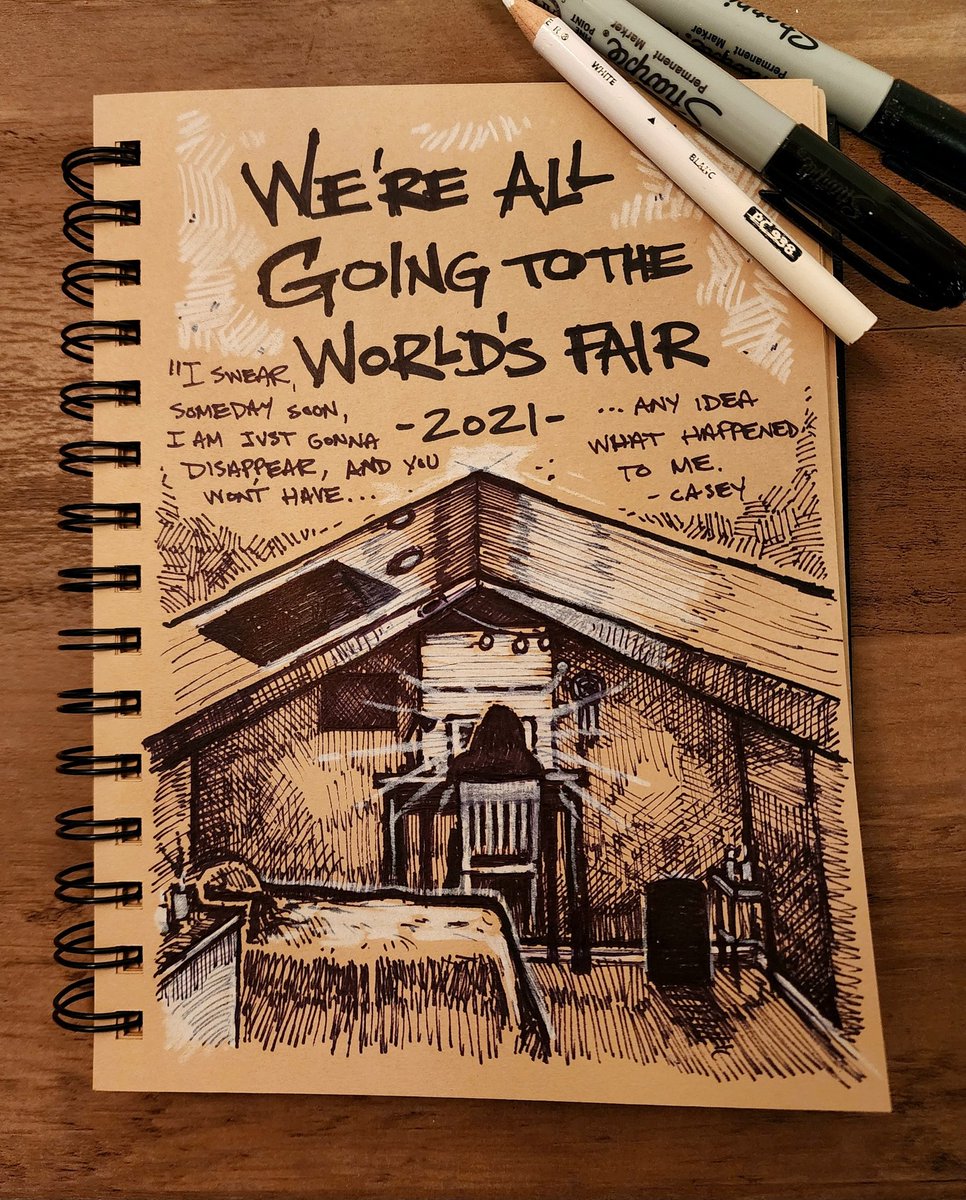 WE'RE ALL
GOING TO THE
WORLD'S FAIR
-2021-
"I SWEAR,
SOMEDAY SOON,
I AM JUST GONNA
DISAPPEAR, AND YOU
WON'T HAVE...
...ANY IDEA
WHAT HAPPENED
TO ME.
- CASEY
WHITE ▲ BLANC PC938
Sharpie
FINE POINT
Permanent Marker
Sharpie
Permanent Marker
Sharpie